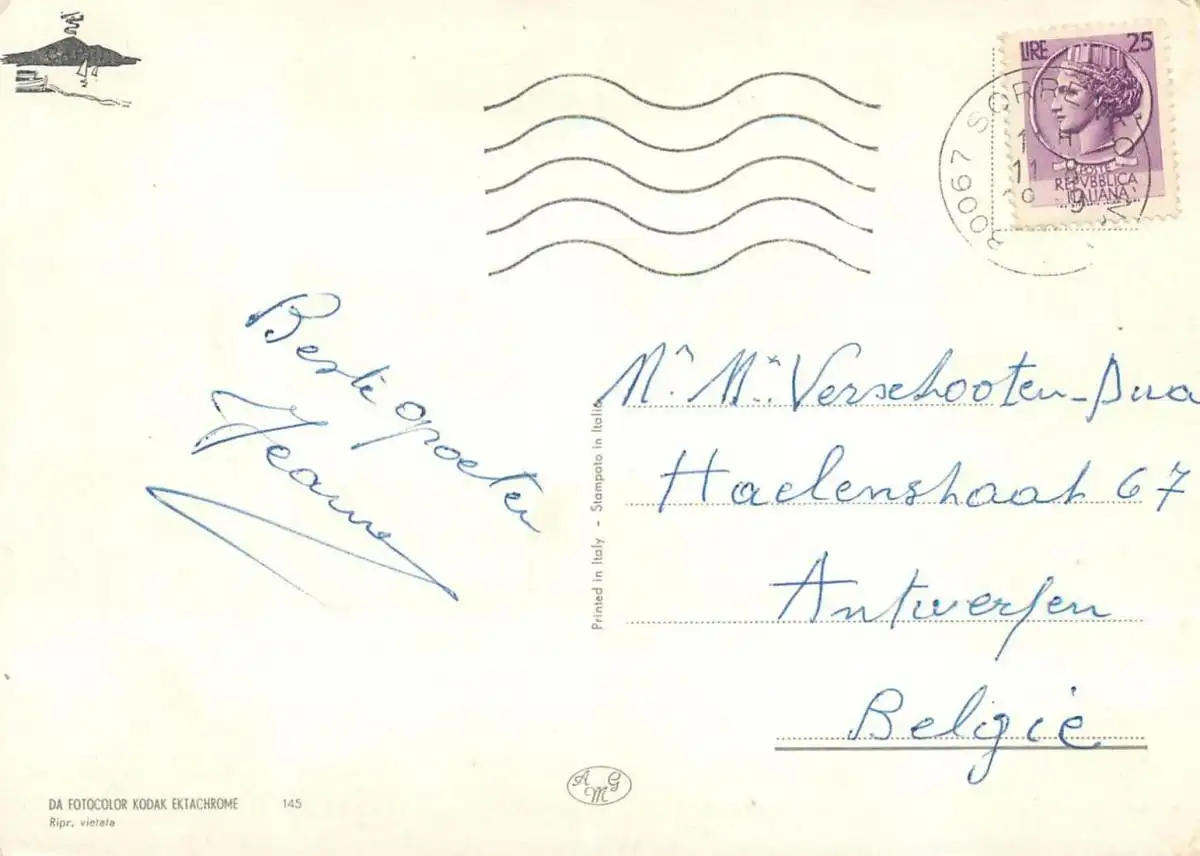 LIRE 25
POSTE
REPVBBLICA
ITALIANA
80067 SORRENTO
11 8
Beste groeten
Jeanne
Mr. Mw. Verschooten-Dua
Haelenstraat 67
Antwerpen
België
Printed in Italy - Stampato in Italia
A G M
DA FOTOCOLOR KODAK EKTACHROME 145
Ripr. vietata